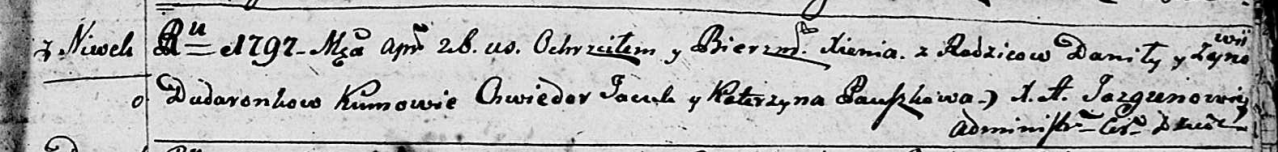 z Niwek Ru 1797 Mca Apr 26. us. Ochrzciłem y Bierzm. Xienia. z Rodzicow Daniły y Zyno
wii
Dudaronkow Kumowie Chwiedor Jacuk y Katerzyna Pauszkowa X. A. Jazgunowicz
Administr. Cer.